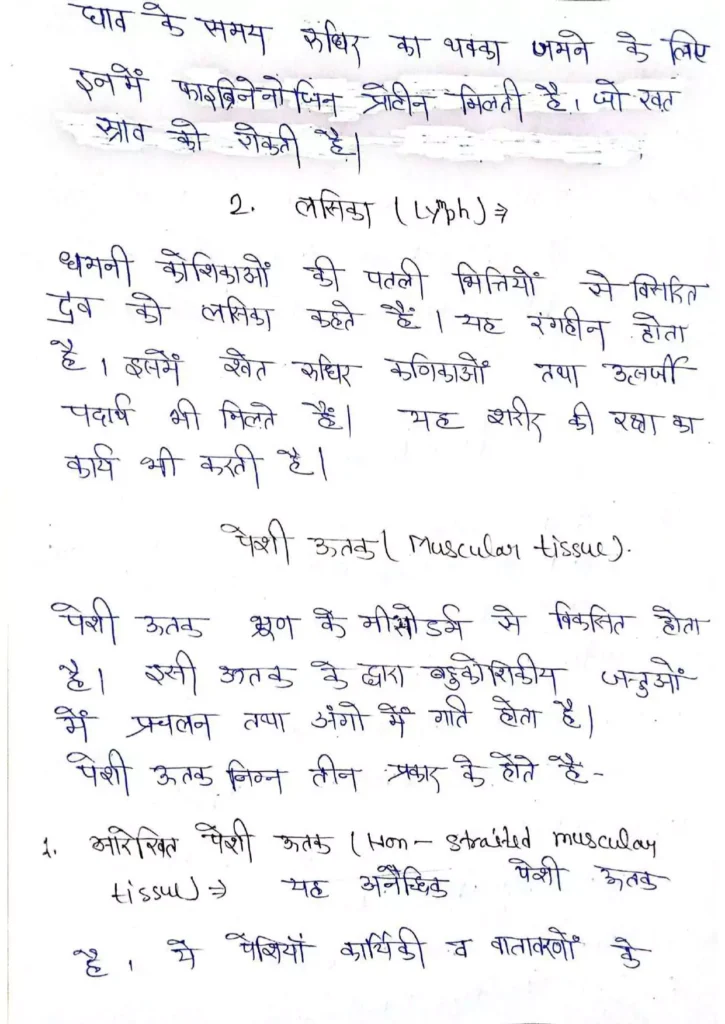 घाव के समय रुधिर का थक्का जमने के लिए
इनमें फाइब्रिनेनोजिन प्रोटीन मिलती है। जो रक्त
स्राव को रोकती है।
2. लसिका (Lymph) ⇒
धमनी कोशिकाओं की पतली भित्तियों से विसरित
द्रव को लसिका कहते हैं। यह रंगहीन होता
है। इसमें श्वेत रुधिर कणिकाओं तथा उत्सर्जी
पदार्थ भी मिलते हैं। यह शरीर की रक्षा का
कार्य भी करती है।
पेशी ऊतक (Muscular tissue).
पेशी ऊतक भ्रूण के मीसोडर्म से विकसित होता
है। इसी ऊतक के द्वारा बहुकोशिकीय जन्तुओं
में प्रचलन तथा अंगो में गति होता है।
पेशी ऊतक निम्न तीन प्रकार के होते है -
1. आरेखित पेशी ऊतक (Non - straited muscular
tissue) ⇒ यह अनैच्छिक पेशी ऊतक
है। ये पेशियाँ कार्यिकी व वातावरणों के